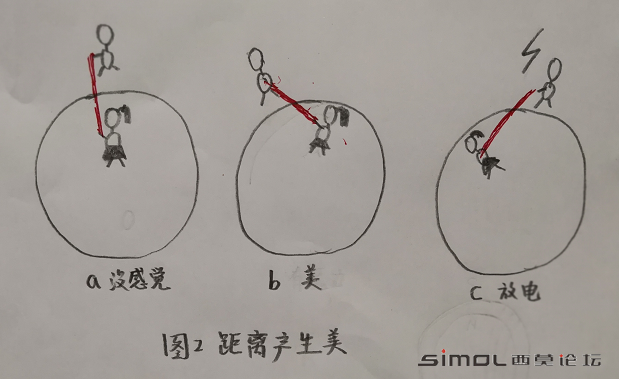 a 没感觉
b 美
c 放电
图2 距离产生美
simol西莫论坛